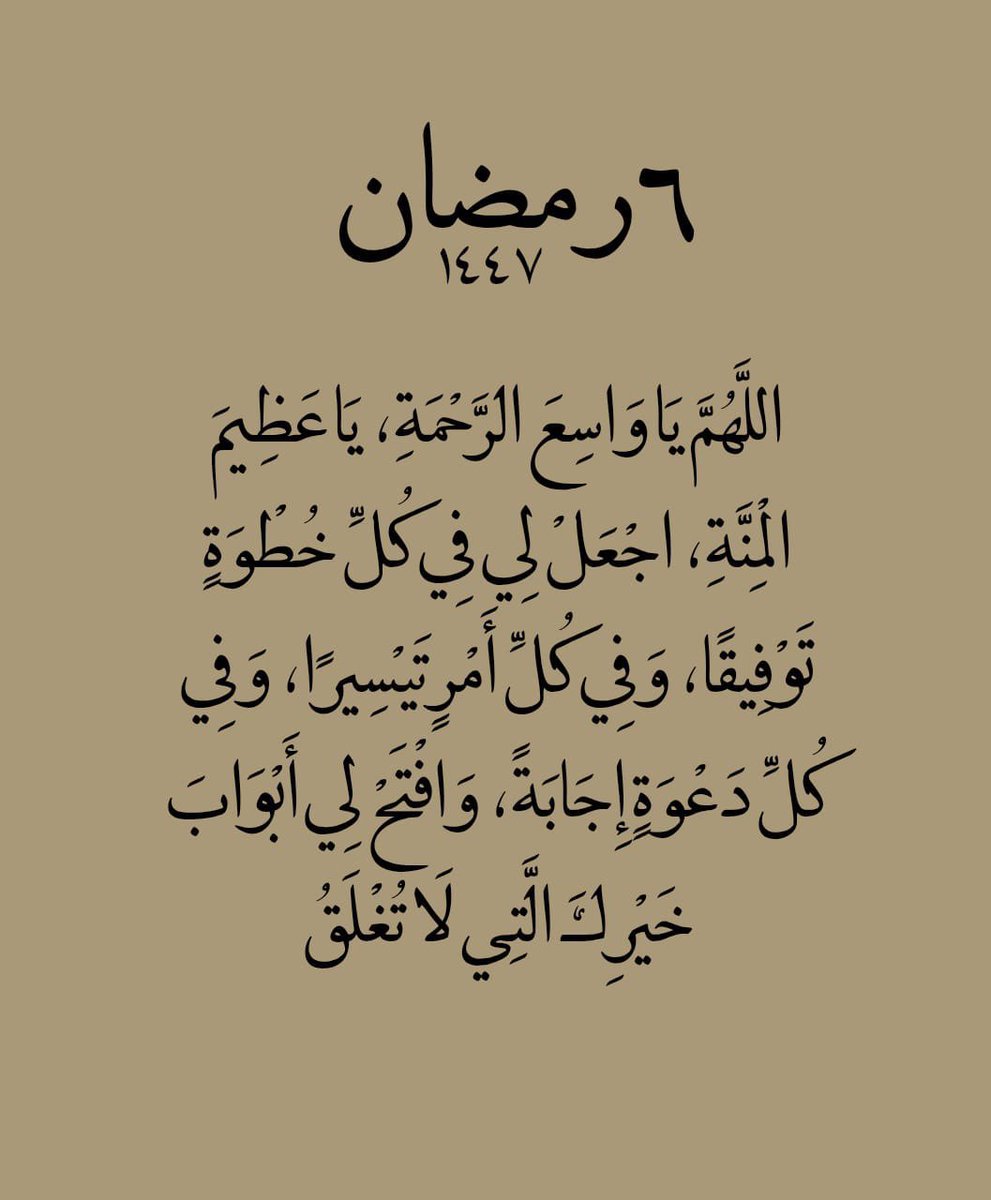 ٦ رمضان
١٤٤٧
اللَّهُمَّ يَا وَاسِعَ الرَّحْمَةِ، يَا عَظِيمَ
الْمِنَّةِ، اجْعَلْ لِي فِي كُلِّ خُطْوَةٍ
تَوْفِيقًا، وَفِي كُلِّ أَمْرٍ تَيْسِيرًا، وَفِي
كُلِّ دَعْوَةٍ إِجَابَةً، وَافْتَحْ لِي أَبْوَابَ
خَيْرِكَ الَّتِي لَا تُغْلَقُ